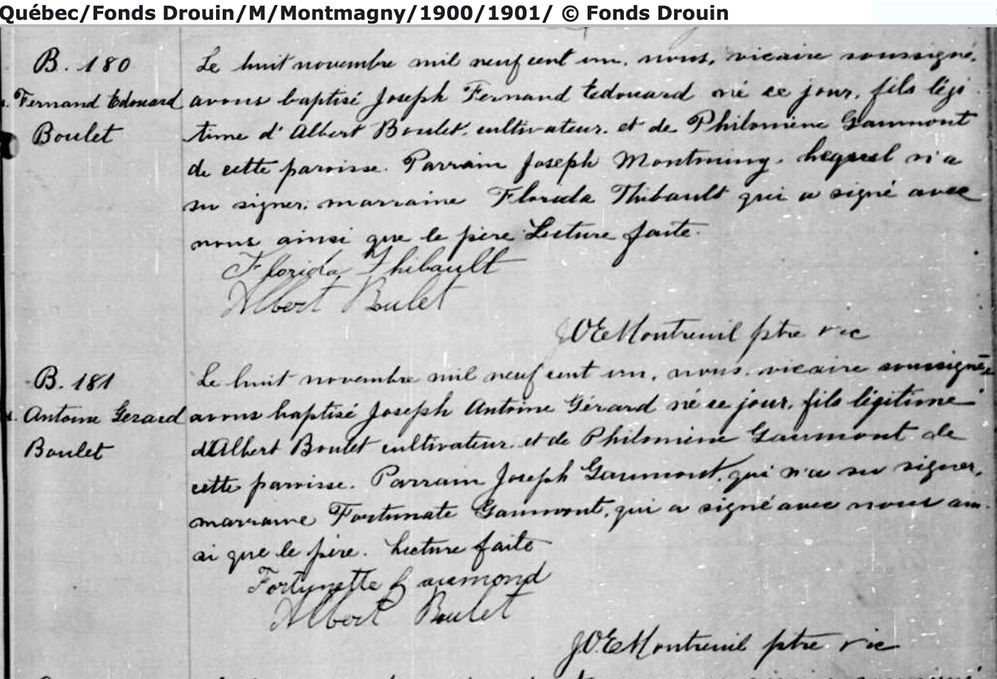 Québec/Fonds Drouin/M/Montmagny/1900/1901/ © Fonds Drouin
B. 180
Fernand Edouard
Boulet
Le huit novembre mil neuf cent un, nous, vicaire soussigné,
avons baptisé Joseph Fernand Edouard né ce jour, fils légi
time d'Albert Boulet, cultivateur, et de Philomène Gaumont
de cette paroisse. Parrain Joseph Montminy, lequel n'a
su signer; marraine Florida Thibault qui a signé avec
nous ainsi que le père. Lecture faite.
Florida Thibault
Albert Boulet
JOE Montreuil ptre vic
B. 181
Antoine Gerard
Boulet
Le huit novembre mil neuf cent un, nous, vicaire soussigné,
avons baptisé Joseph Antoine Gérard né ce jour, fils légitime
d'Albert Boulet cultivateur, et de Philomène Gaumont de
cette paroisse. Parrain Joseph Gaumont, qui n'a su signer,
marraine Fortunate Gaumont, qui a signé avec nous ain-
si que le père. Lecture faite
Fortunette Gaumond
Albert Boulet
J.O.E Montreuil ptre vic